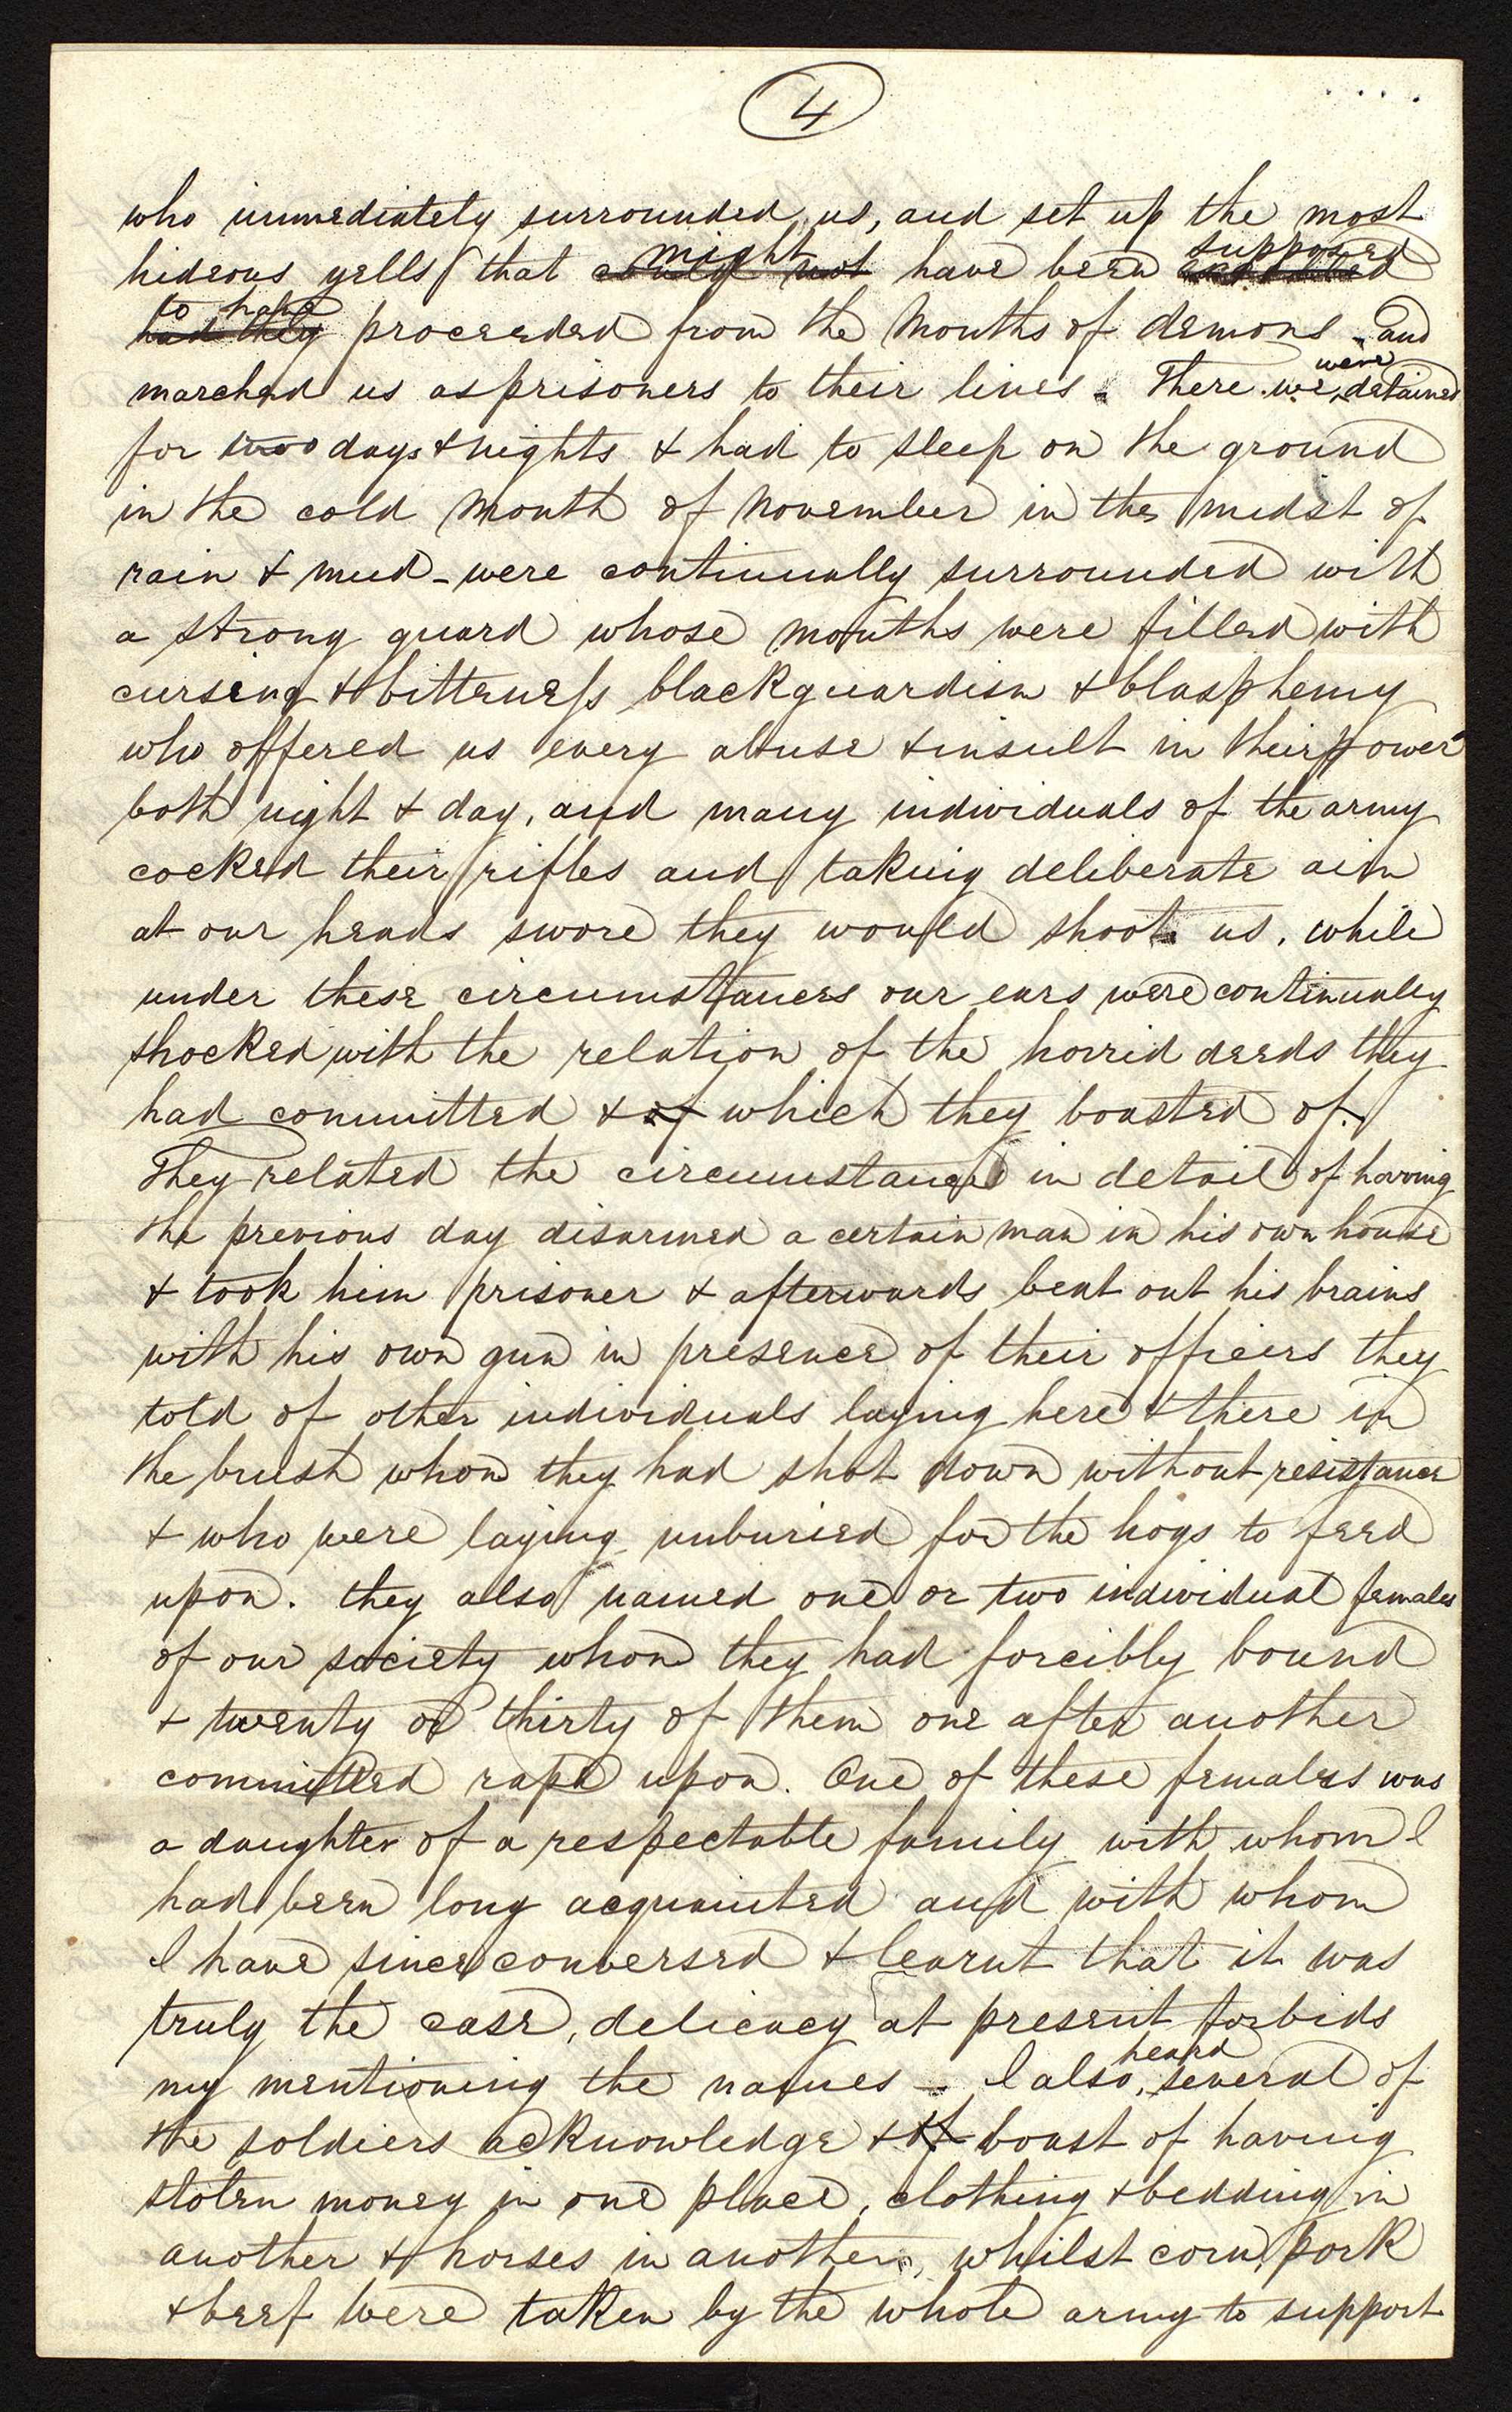 4
who immediately surrounded us, and set up the most
hideous yells that might have been supposed
could not
to have proceeded from the mouths of demons - and
had they
marched us as prisoners to their lines. There we were detained
for two days & nights & had to sleep on the ground
in the cold month of November in the midst of
rain & mud - were continually surrounded with
a strong guard whose mouths were filled with
cursing & bitterness blackguardism & blasphemy
who offered us every abuse & insult in their power
both night & day, and many individuals of the army
cocked their rifles and taking deliberate aim
at our heads swore they would shoot us. while
under these circumstances our ears were continualey
shocked with the relation of the horrid deeds they
had committed & of which they boasted of.
They related the circumstance in detail of having
the previous day disarmed a certain man in his own house
& took him prisoner & afterwards beat out his brains
with his own gun in presence of their officers they
told of other individuals laying here & there in
the brush whom they had shot down without resistance
& who were laying unburied for the hogs to feed
upon. they also named one or two individual females
of our society whom they had forcibly bound
& twenty or thirty of them one after another
committed rape upon. One of these females was
a daughter of a respectable family with whom I
had been long acquainted and with whom
I have since conversed & learnt that it was
truly the case, delicacy at present forbids
my mentioning the names - I also heard several of
the soldiers acknowledge & of boast of having
stolen money in one place, clothing & bedding in
another & horses in another, whilst corn, pork
& beef were taken by the whole army to support